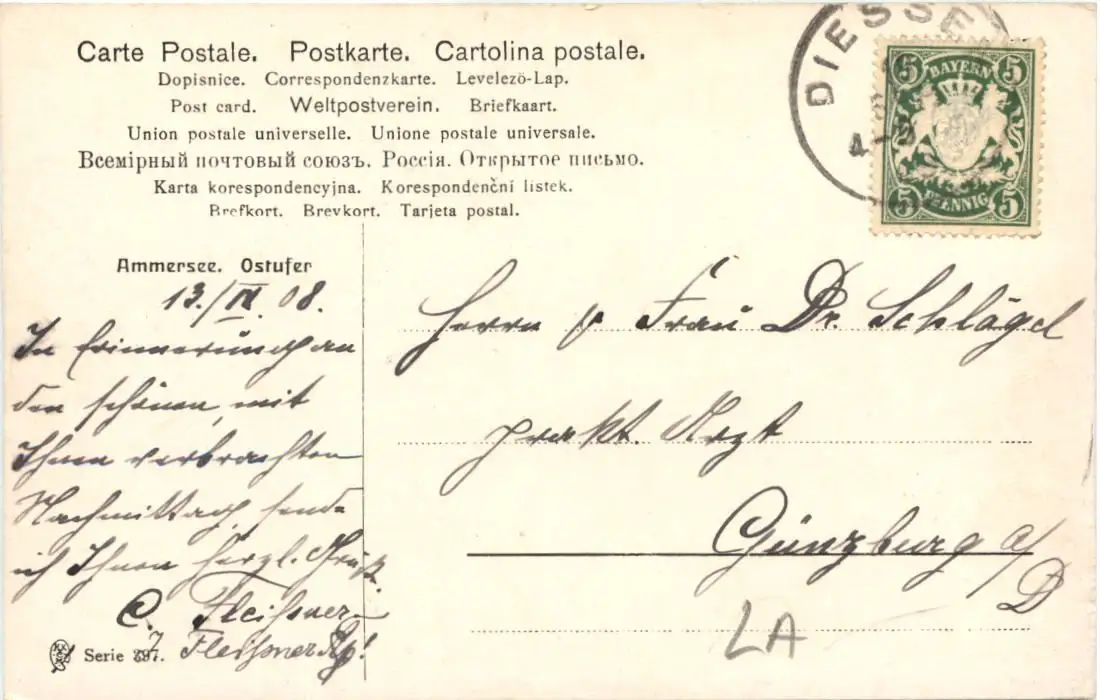 Carte Postale. Postkarte. Cartolina postale.
Dopisnice. Correspondenzkarte. Levelezö-Lap.
Post card. Weltpostverein. Briefkaart.
Union postale universelle. Unione postale universale.
Всемірный почтовый союзъ. Россія. Открытое письмо.
Karta korespondencyjna. Korespondenční listek.
Brefkort. Brevkort. Tarjeta postal.
DIESSE
5 BAYERN 5
5 PFENNIG 5
Ammersee. Ostufer
13./IX. 08.
In Erinnerung an
den schönen, mit
Ihnen verbrachten
Nachmittag, sende
ich Ihnen herzl. Grüße.
C. Fleissner
J. Fleissner
Serie 397.
Herrn Frau Dr. Schlägel
prakt. Arzt
Günzburg a/D
LA